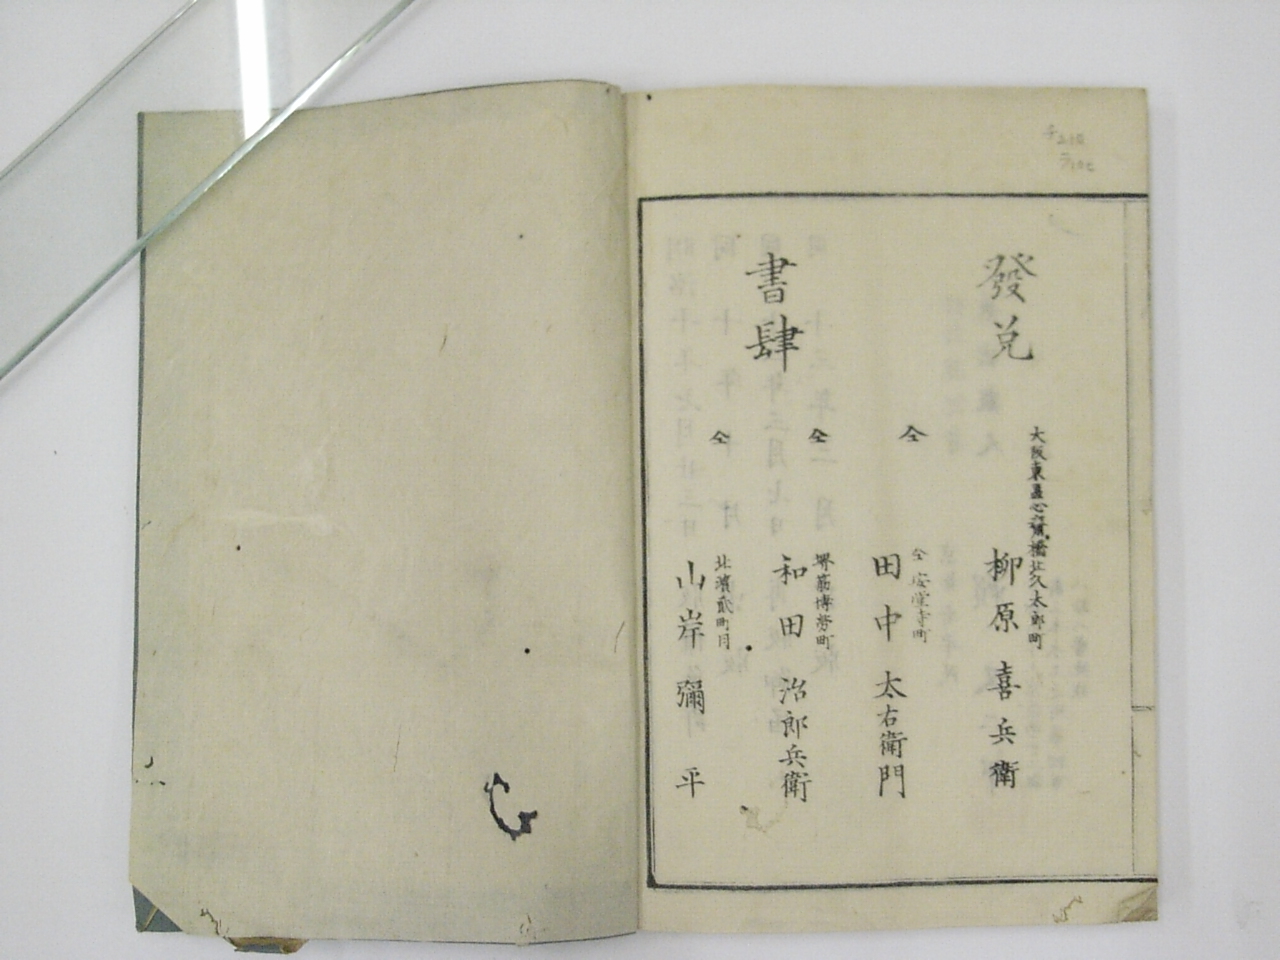 發兌
大阪東區心齋橋北久太郎町
柳原喜兵衛
仝
仝安堂寺町
田中太右衛門
書肆
仝
堺筋博勞町
和田治郎兵衛
仝
北濱貳町目
山岸彌平